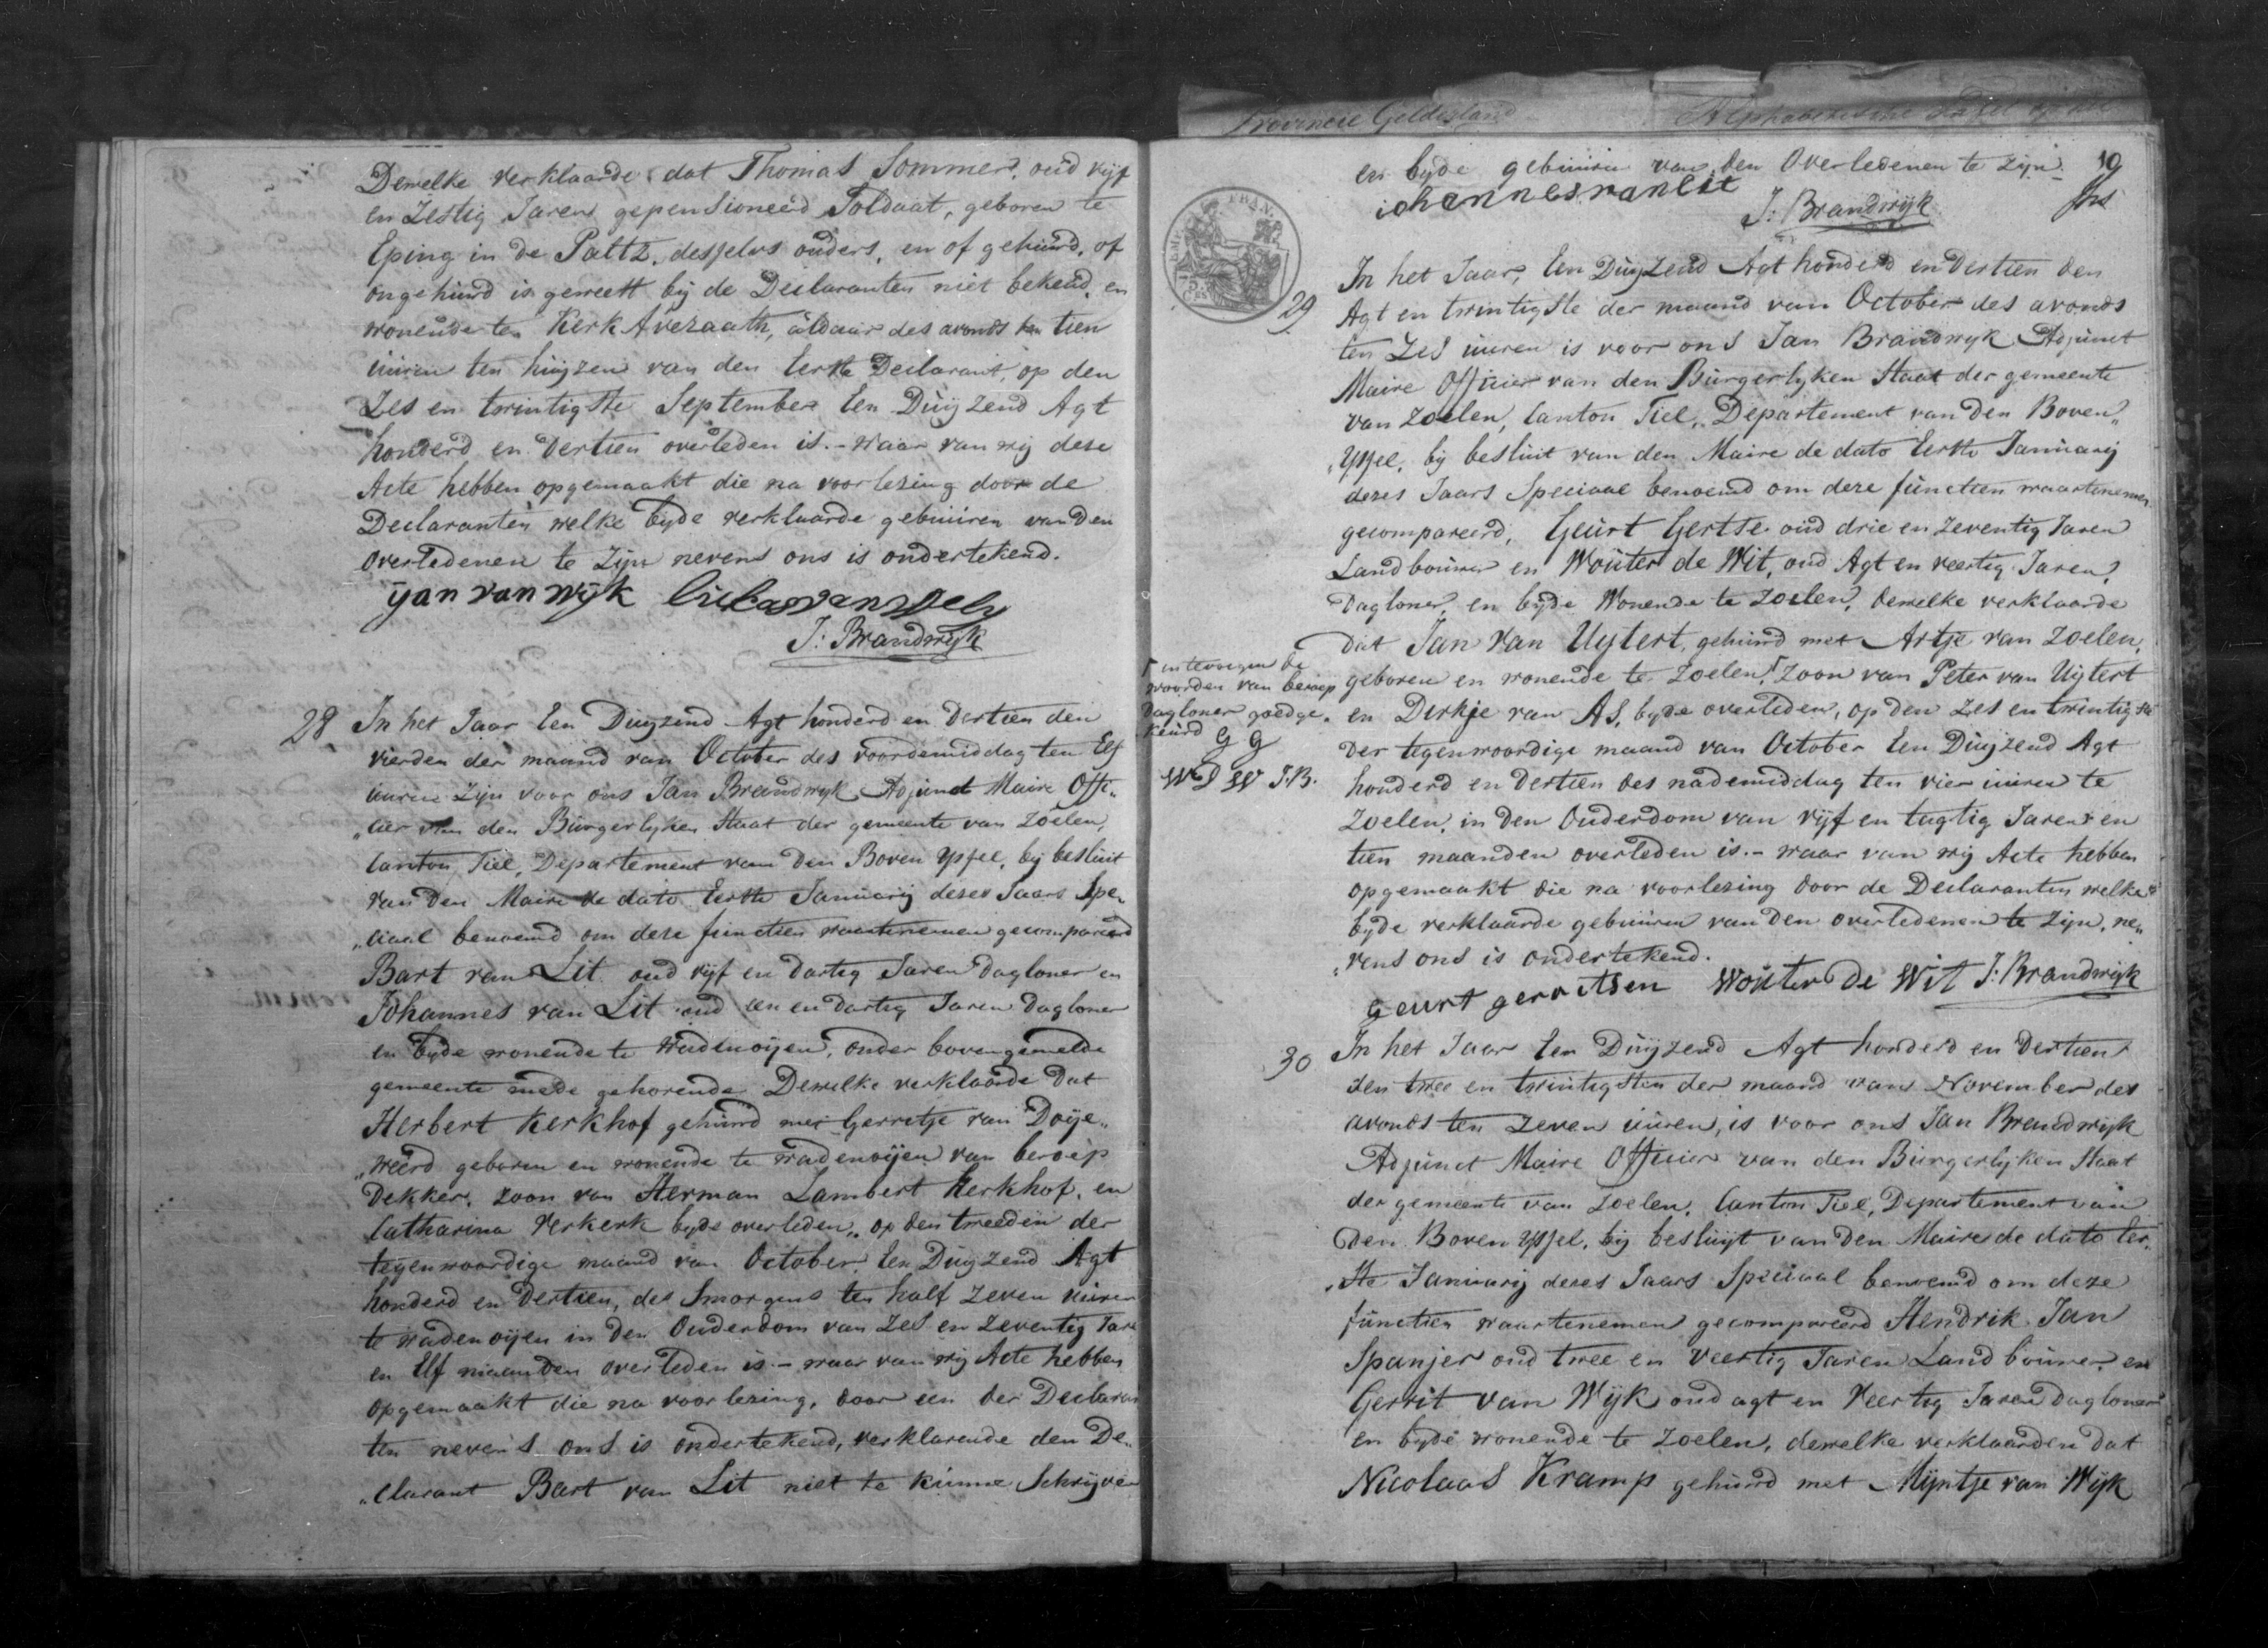 Dewelke verklaarde dat Thomas Sommer, oud vijf
en Zestig Jaren gepensioneerd Soldaat, geboren te
Eping in de Paltz, desselvs ouders, en of gehuwd, of
ongehuwd is geweest bij de Declaranten niet bekend, en
wonende te Kerk Avezaath, aldaar des avonds ten tien
uuren ten huijzen van den Eerste Declarant, op den
Zes en twintigste September Een Duijzend Agt
honderd en Dertien overleden is. - waar van wij deze
Acte hebben opgemaakt die na voorlezing door de
Declaranten welke bijde verklaarde gebuuren van den
overledenen te Zijn nevens ons is ondertekend.
ijan van wijk
J: Brandwijk
28 In het Jaar Een Duijzend Agt honderd en Dertien den
vierden der maand van October des voordemiddag ten Elf
uuren zijn voor ons Jan Brandwijk Adjunct Maire Offi„
„cier van den Burgerlyken Staat der gemeente van Zoelen,
Canton Tiel, Departement van den Boven Yssel, bij besluit
van den Maire de dato Eerste Januarij dezes Jaars Spe„
„ciaal benoemd om deze functien waartenemen gecompareerd
Bart van Lit oud vijf en dartig Jaren Dagloner en
Johannes van Lit oud een en dartig Jaren Dagloner
en bijde wonende te Wadenoijen, onder bovengemelde
gemeente mede gehorende Dewelke verklaarde Dat
Herbert Kerkhof gehuwd met Gerretje van Doije„
„weerd geboren en wonende te Wadenoijen van beroep
Dekker, zoon van Herman Lambert Kerkhof, en
Catharina Verkerk byde overleden, op den tweeden der
tegenwoordige maand van October Een Duijzend Agt
honderd en Dertien, des Smorgens ten half zeven uuren
te Wadenoijen in den Ouderdom van Zes en Zeventig Jare
en Elf maanden overleden is - waar van wij Acte hebben
opgemaakt die na voorlezing, door een der Declaran
ten nevens ons is ondertekend, verklarende den De„
„clarant Bart van Lit niet te kunne Schrijven
Provincie Gelderland
Alphabetische tafel op de
en byde gebuuren van den Overledenen te zijn. 19
iohannes van lit
J: Brandwijk
29 In het Jaar, Een Duijzend Agt honderd en Dertien den
Agt en twintigste der maand van October des avonds
ten Zes uuren is voor ons Jan Brandwyk Adjunct
Maire Officier van den Burgerlyken Staat der gemeente
van Zoelen, Canton Tiel, Departement van den Boven„
„Yssel, bij besluit van den Maire de dato Eerste Januarij
dezes Jaars Speciaal benoemd om deze functien waartenemen
gecompareerd, Geurt Gertse oud drie en zeventig Jaren
Landbouwer en Wouter de Wit, oud Agt en veertig Jaren,
Dagloner, en byde Wonende te Zoelen, dewelke verklaarde
Dat Jan van Uijtert, gehuwd met Artje van Zoelen,
geboren en wonende te Zoelen, zoon van Peter van Uijtert
en Dirkje van As, byde overleden, op den Zes en twintigste
der tegenwoordige maand van October Een Duijzend Agt
honderd en Dertien des nademiddag ten vier uuren te
Zoelen, in den Ouderdom van vijf en tagtig Jaren en
tien maanden overleden is. - waar van wij Acte hebben
opgemaakt die na voorlezing door de Declaranten welke
byde verklaarde gebuuren van den overledenen te zijn, ne„
„vens ons is ondertekend.
geurt gerritsen Wouter de Wit J: Brandwijk
in tevoegen de
woorden van beroep
Dagloner goedge„
keurd G G
W D W J.B.
30 In het Jaar Een Duijzend Agt honderd en Dertien
den twee en twintigsten der maand van November des
avonds ten zeven uuren, is voor ons Jan Brandwijk
Adjunct Maire Officier van den Burgerlijken Staat
der gemeente van Zoelen, Canton Tiel, Departement van
Den Boven Yssel, bij besluijt van den Maire de dato Eer„
„ste Januarij dezes Jaars Speciaal benoemd om deze
functien waartenemen gecompareerd Hendrik Jan
Spanjer oud twee en veertig Jaren Landbouwer, en
Gerrit van Wijk oud agt en Veertig Jaren Dagloner
en byde wonende te Zoelen, dewelke verklaarden dat
Nicolaas Kramp gehuwd met Mijntje van Wijk